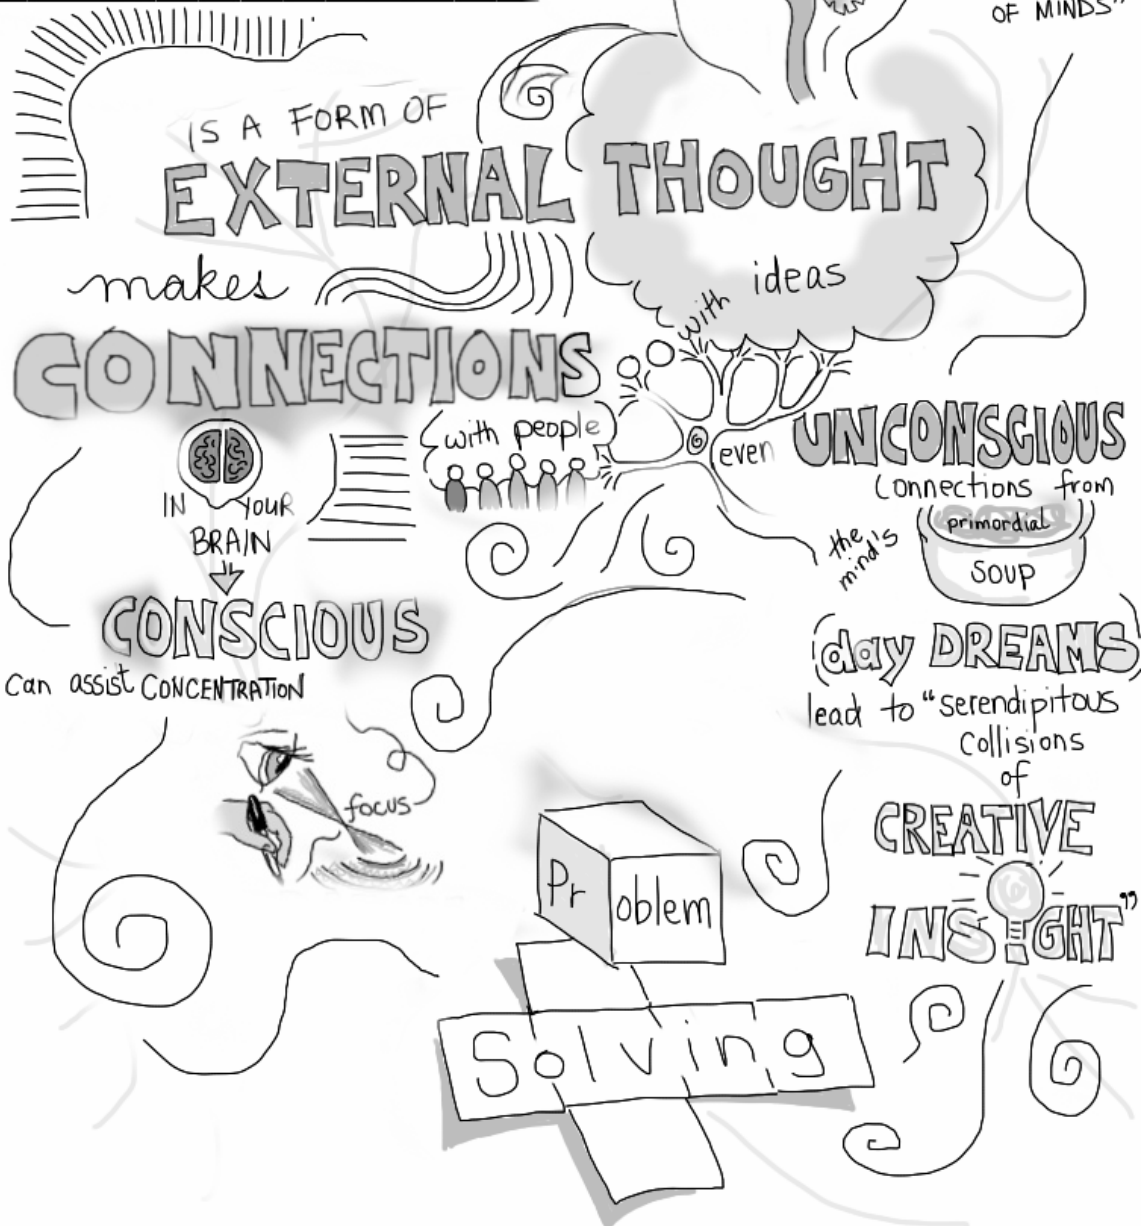 OF MINDS"
IS A FORM OF
EXTERNAL THOUGHT
makes
with ideas
CONNECTIONS
with people
even UNCONSCIOUS
Connections from
the mind's
primordial
SOUP
IN YOUR
BRAIN
CONSCIOUS
can assist CONCENTRATION
focus
(day DREAMS)
lead to "serendipitous
Collisions
of
CREATIVE
INSIGHT"
Problem
Solving